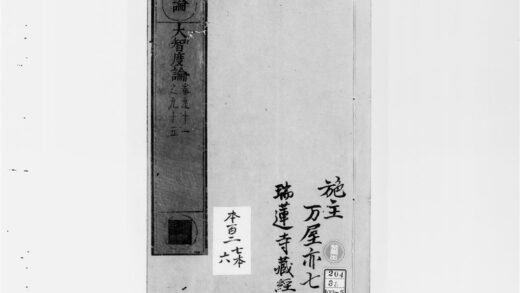 論
大智度論
卷九十一
之九十五
施主
万屋亦七
瑞蓮寺藏經
本百二七本
六
204